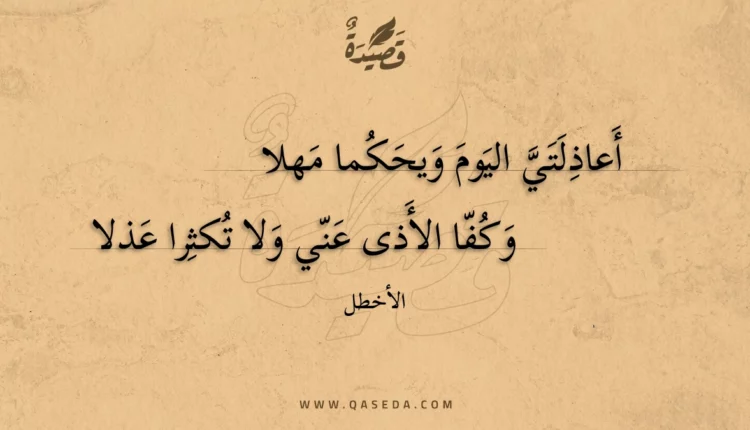 قَصِيْدَةٌ
أَعاذِلَتَيَّ اليَومَ وَيحَكُما مَهلا
وَكُفّا الأَذى عَنّي وَلا تُكثِرا عَذلا
الأخطل
WWW.QASEDA.COM